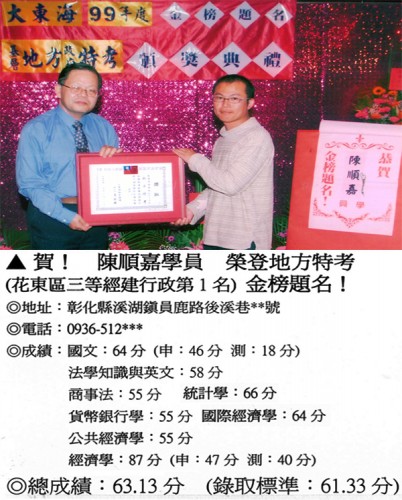 大東海 99年度 金榜題名
地方政府特考 頒獎典禮
恭賀
陳順嘉
學員
金榜題名!
▲ 賀！ 陳順嘉學員 榮登地方特考
(花東區三等經建行政第1名) 金榜題名！
◎地址：彰化縣溪湖鎮員鹿路後溪巷**號
◎電話：0936-512***
◎成績：國文：64分 (申：46分 測：18分)
法學知識與英文：58分
商事法：55分 統計學：66分
貨幣銀行學：55分 國際經濟學：64分
公共經濟學：55分
經濟學：87分 (申：47分 測：40分)
◎總成績：63.13分 (錄取標準：61.33分)